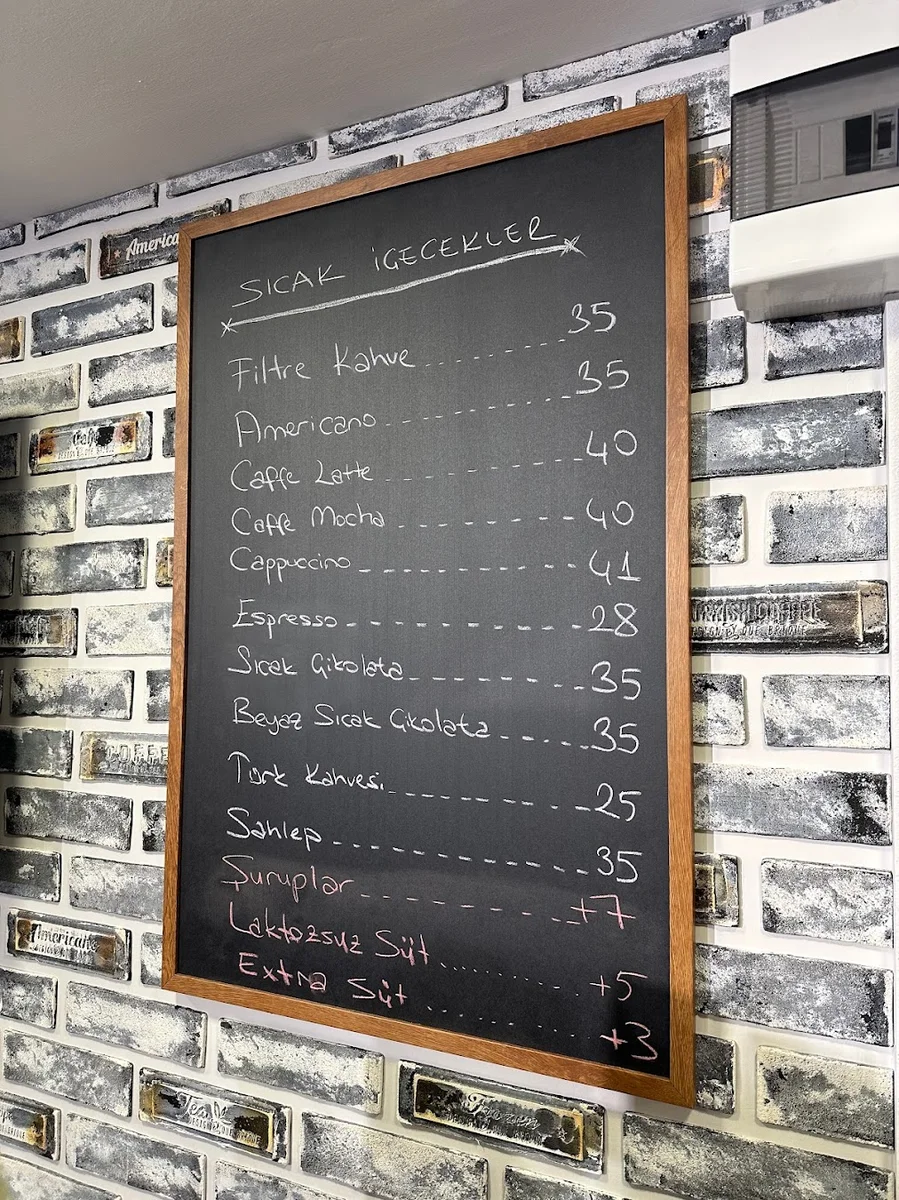 SICAK İÇECEKLER
Filtre Kahve 35
Americano 35
Caffe Latte 40
Caffe Mocha 40
Cappuccino 41
Espresso 28
Sıcak Çikolata 35
Beyaz Sıcak Çikolata 35
Türk Kahvesi 25
Sahlep 35
Şuruplar +7
Laktozsuz Süt +5
Extra Süt +3
America
Cafe
COFFEE
American
Tea
TURKISH COFFEE